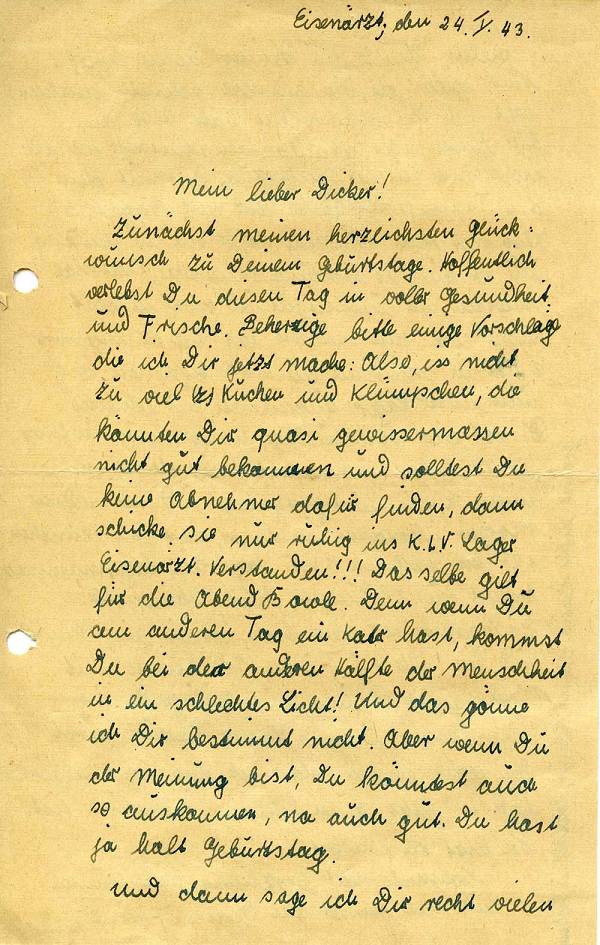 Eisenärzt, den 24. V. 43.
Mein lieber Dicker!
Zunächst meinen herzlichsten Glück-
wunsch zu Deinem Geburtstage. Hoffentlich
verlebst Du diesen Tag in voller Gesundheit
und Frische. Beherzige bitte einige Vorschläge
die ich Dir jetzt mache: Also, iss nicht
zu viel Kuchen und Klümpschen, die
könnten Dir quasi gewissermassen
nicht gut bekommen und solltest Du
keine Abnehmer dafür finden, dann
schicke sie nur ruhig ins K.L.V. Lager
Eisenärzt. Verstanden!!! Das selbe gilt
für die Abend Bowle. Denn wenn Du
am anderen Tag ein Katr hast, kommst
Du bei der anderen Hälfte der Menschheit
in ein schlechtes Licht! Und das gönne
ich Dir bestimmt nicht. Aber wenn Du
der Meinung bist, Du könndest auch
so auskommen, na auch gut. Du hast
ja halt Geburtstag.
Und dann sage ich Dir recht vielen